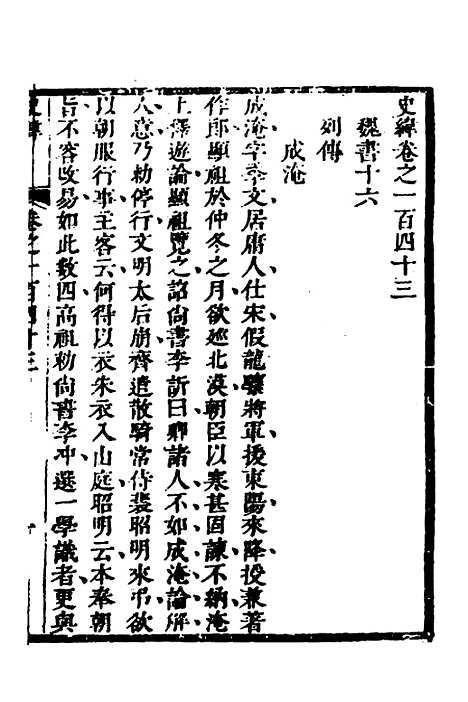 史緯卷之一百四十三
魏書十六
列傳
成淹
成淹字季文居庸人仕宋假龍驤將軍援東陽來降授兼著
作郎顯祖於仲冬之月欲巡北漠朝臣以寒甚固諫不納淹
上釋遊論顯祖覽之詔尙書李訢曰卿諸人不如成淹論解
人意乃勅停行文明太后崩齊遣散騎常侍裴昭明來弔欲
以朝服行事主客云何得以衣朱衣入山庭昭明云本奉朝
旨不容改易如此數四高祖勅尙書李冲選一學識者更與
史緯
卷之一百四十三